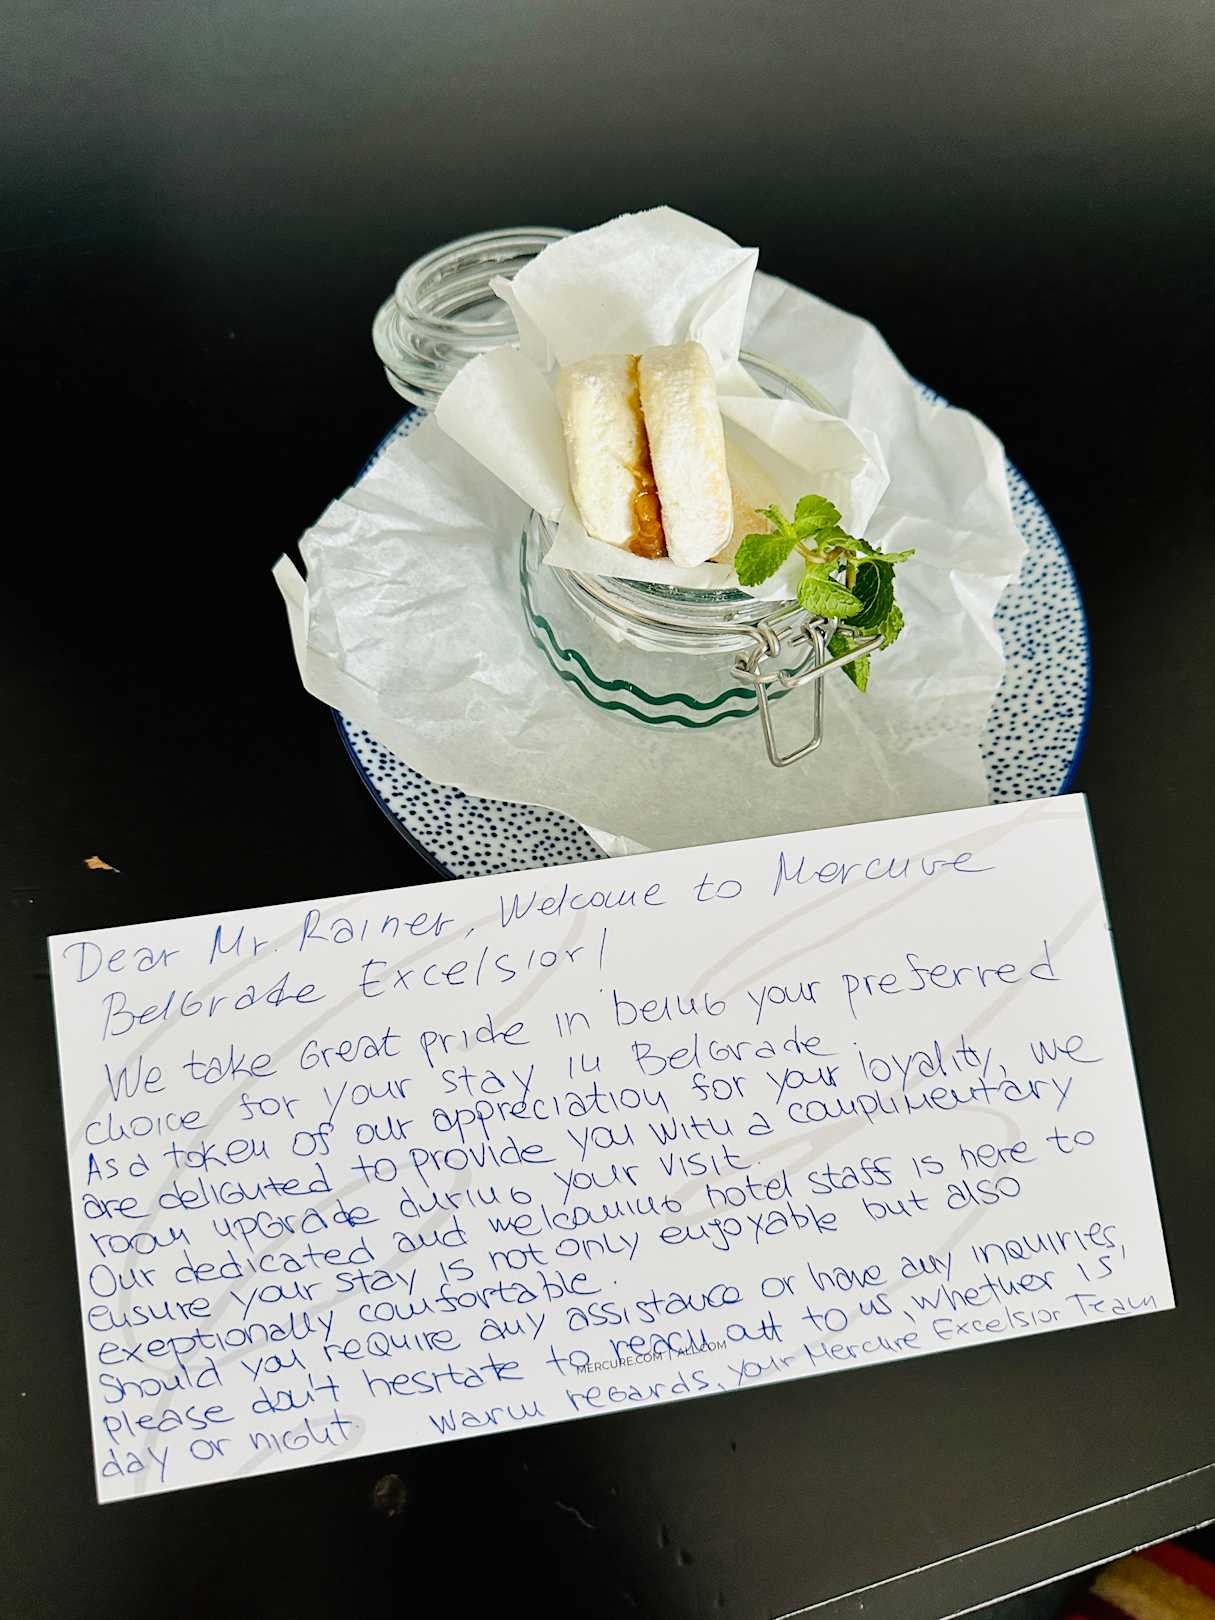 Dear Mr. Rainer, Welcome to Mercure
Belgrade Excelsior!
We take great pride in being your preferred
choice for your stay in Belgrade.
As a token of our appreciation for your loyality, we
are delighted to provide you with a complimentary
room upgrade during your visit.
Our dedicated and welcoming hotel staff is here to
ensure your stay is not only enjoyable but also
exeptionally comfortable.
Should you require any assistance or have any inquiries,
please don't hesitate to reach out to us, whether is
day or night. Warm regards, your Mercure Excelsior Team
MERCURE.COM | ALL.COM